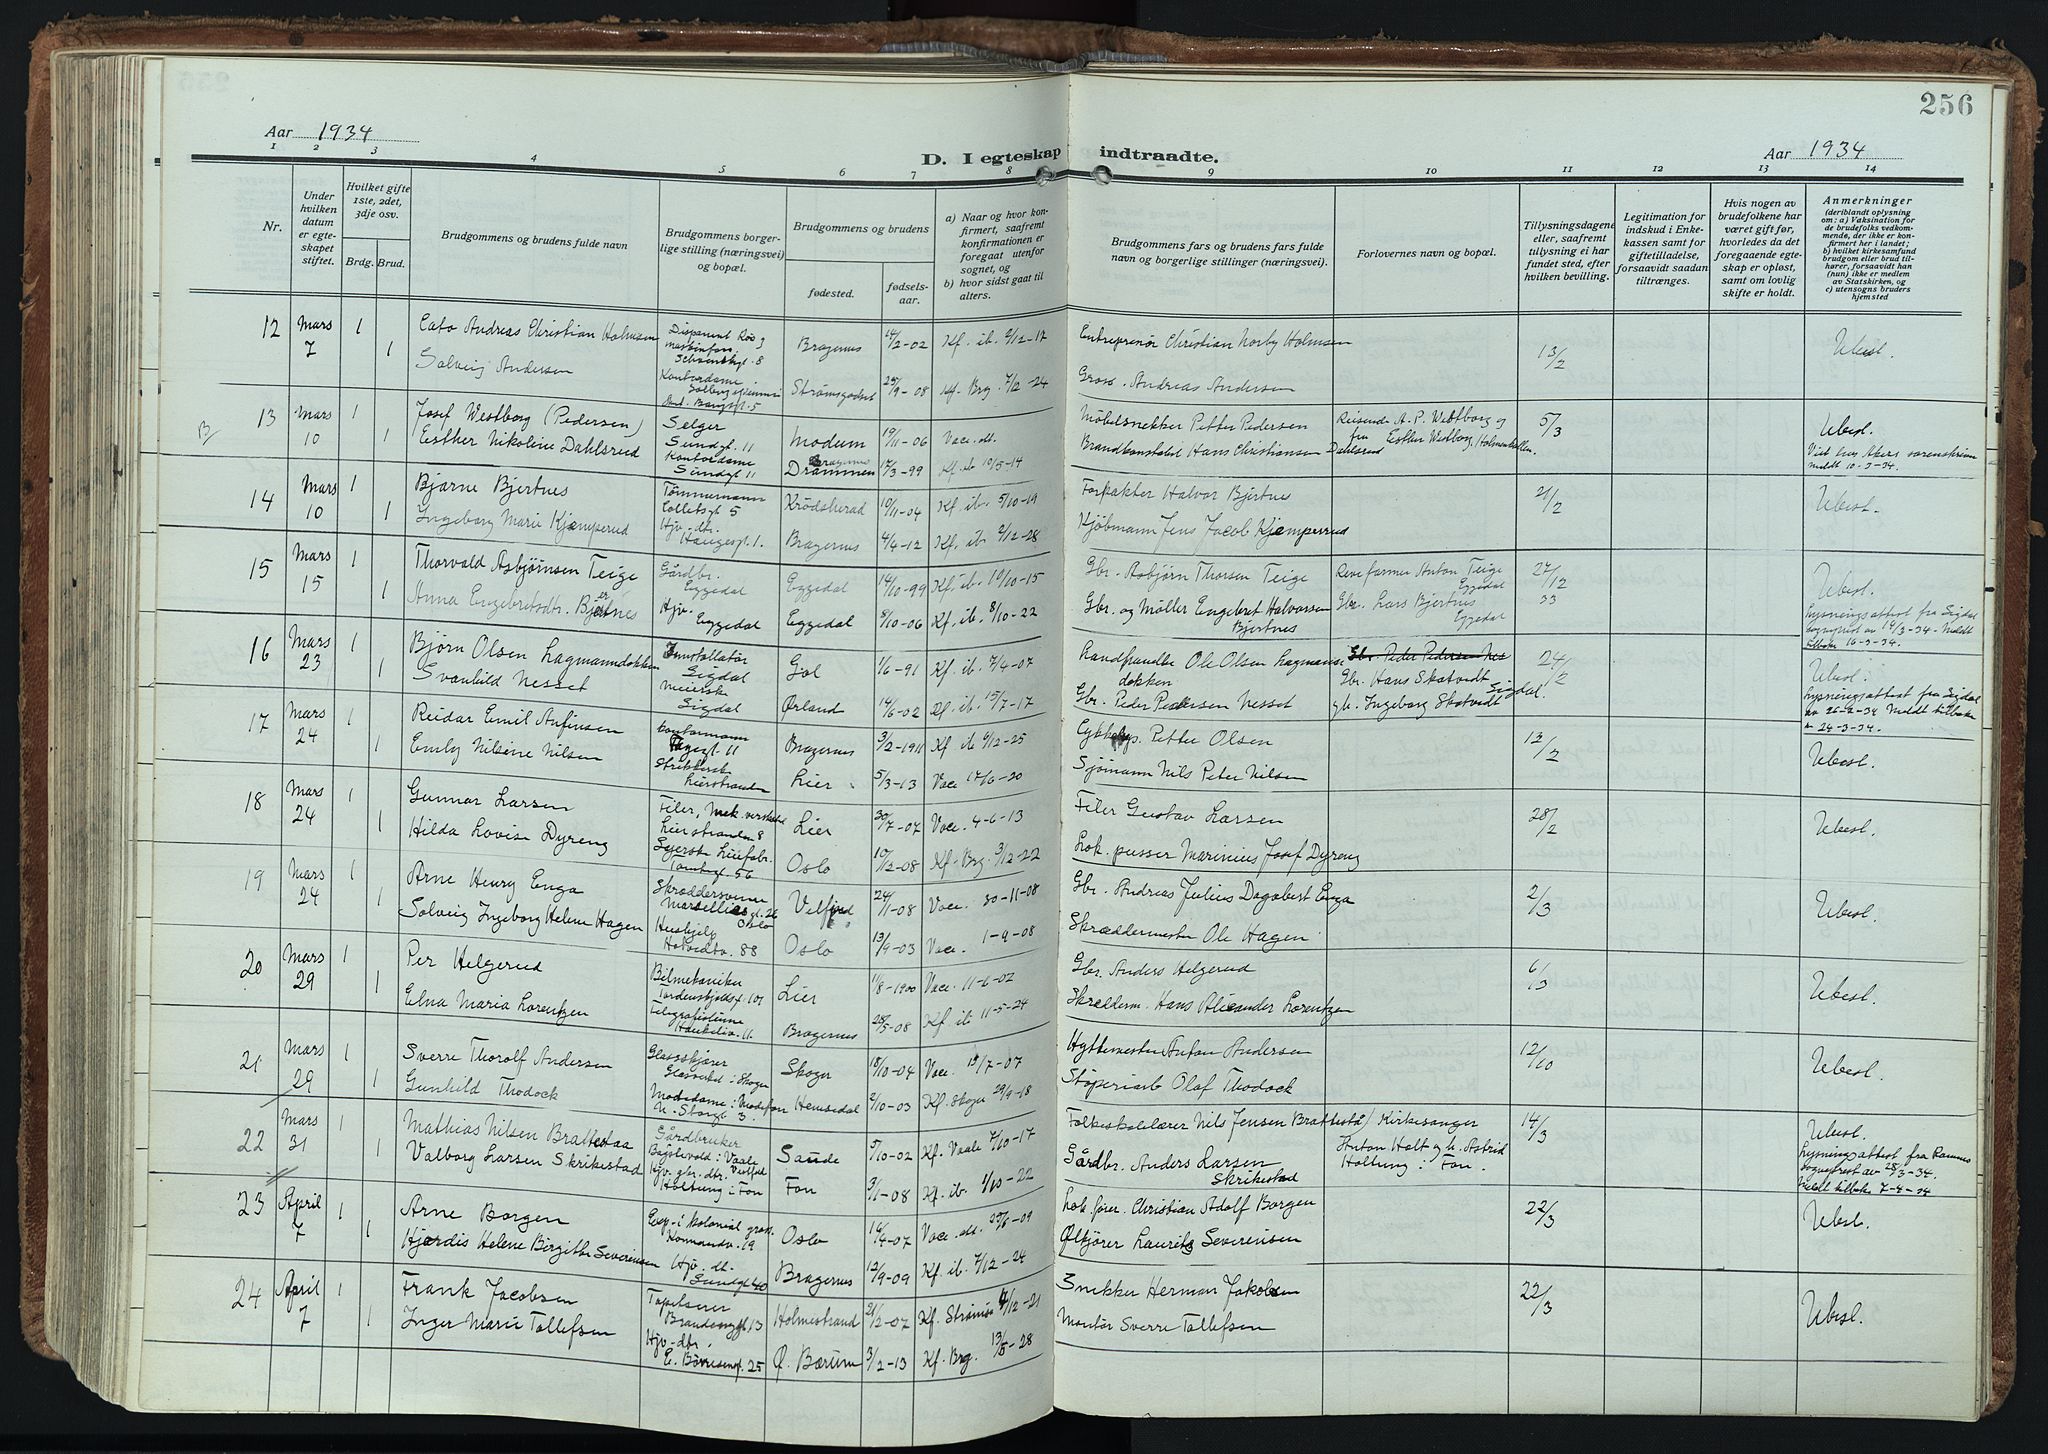 256
Aar 1934
D. I egteskap indtraadte.
Aar 1934
1 2 3 4 5 6 7 8 9 10 11 12 13 14
Nr.
Under hvilken datum er egteskapet stiftet.
Hvilket gifte 1ste, 2det, 3dje osv.
Brdg. Brud.
Brudgommens og brudens fulde navn
Brudgommens borgerlige stilling (næringsvei) og bopæl.
Brudgommens og brudens
fødested.
fødselsaar.
a) Naar og hvor konfirmert, saafremt konfirmationen er foregaat utenfor sognet, og
b) hvor sidst gaat til alters.
Brudgommens fars og brudens fars fulde navn og borgerlige stillinger (næringsvei).
Forlovernes navn og bopæl.
Tillysningsdagene eller, saafremt tilysning ei har fundet sted, efter hvilken bevilling.
Legitimation for indskud i Enkekassen samt for giftetilladelse, forsaavidt saadan tiltrænges.
Hvis nogen av brudefolkene har været gift før, hvorledes da det foregaaende egteskap er opløst, samt om lovlig skifte er holdt.
Anmerkninger
(deriblandt oplysning om: a) Vaksination for de i brudefolks vedkommende, der ikke er konfirmert her i landet;
b) hvilket kirkesamfund brudgom eller brud tilhører, forsaavidt han (hun) ikke er medlem av Statskirken, og
c) utensogns bruders hjemsted
12 Mars 7 1 Cato Andreas Christian Holmsen Schwenckgt. 8 Bragernes 14/2-02 Kf. ib. 2/12-17 Entreprenør Christian Norby Holmsen 13/2 Ubesl.
1 Solveig Andersen Kontordame Strømsgodset 29/9-08 Kf. Brg. 7/12-24 Gross. Andreas Andersen
13 Mars 10 1 Josef Westborg (Pedersen) Selger Sundgt. 11 Modum 19/11-06 Vacc. att. Møbelsnekker Petter Pedersen Reisende A. P. Westborg og fru Esther Westborg, Holmenkollen. 5/3 Ubesl.
1 Esther Nikoline Dahlsrud Kontordame Sundgt 11 Drammen Bragernes 17/3-99 Kf. ib 10/5-14 Brandkonstabel Hans Christiansen Dahlsrud meldt 10-3-34.
14 Mars 10 1 Bjarne Bjertnes Tømmermann Colletsgt 5 Krødsherad 10/11-04 Kf. ib. 5/10-19 Forpakter Halvor Bjertnes 21/2 Ubesl.
1 Ingeborg Marie Kjæmperud Hjv. dtr. Haugesgt. 1. Bragernes 4/4-12 Kf. ib. 2/12-28 Kjøbmann Jens Jacob Kjæmperud
15 Mars 15 1 Thorvald Asbjørnsen Teige Gårdbr. Eggedal Eggedal 14/10-99 Kf. ib. 10/10-15 Gbr. Asbjørn Thorsen Teige Revefarmer Anton Teige Eggedal 27/12 33 Ubesl.
1 Anna Engebretsdtr. Bjertnes Hjv. Eggedal Eggedal 8/10-06 Kf. ib. 8/10-22 Gbr. og Møller Engebret Halvorsen Bjertnes Gbr. Lars Bjertnes Eggedal Lysningsattest fra Sigdal sogneprest av 14/3-34. Meldt tilbake 16-3-34.
16 Mars 23 1 Bjørn Olsen Lagmanndokken Installatør Sigdal Gol 1/6-91 Kf. ib. 7/4-07 Landhandler Ole Olsen Lagmannsdokken Gbr. Peder Pedersen Nes 24/2 Ubesl.
1 Svanhild Nesset Meierske Sigdal Ørland 14/6-02 Kf. ib. 15/7-17 Gbr. Peder Pedersen Nesset Gbr. Hans Skatvedt gh. Ingeborg Skatvedt Sigdal. Lysningsattest fra Sigdal av 26-2-34 Meldt tilbake 24-3-34.
17 Mars 24 1 Reidar Emil Anfinsen Kontormann Bragernes 3/2-1911 Kf ib 6/12-25 Petter Olsen 12/2 Ubesl.
1 Emly Nilsine Nilsen Strikkerske Lierstranden Lier 5/3-13 Vacc 17/6-20 Sjømann Nils Peter Nilsen
18 Mars 24 1 Gunnar Larsen Filer, Mek. verksted Lierstranden 8 Lier 30/7-07 Vacc. 4-6-13 Filer Gustav Larsen 28/2 Ubesl.
1 Hilda Lovise Dyreng Syerske Oslo 10/12-08 Kf. Brg. 3/12-22 Lok. pusser Marinius Josef Dyreng
19 Mars 24 1 Arne Henry Enga Skreddersvenn Marselliesgt. 26 Oslo 24/11-08 Vacc. 30-11-08 Gbr. Andreas Julius Dagobert Enga 2/3 Ubesl.
1 Solveig Ingeborg Helene Hagen Hushjelp Hotvedtv. 88 Oslo 13/9-03 Vacc. 1-9-08 Skræddermester Ole Hagen
20 Mars 29 1 Per Helgerud Bilmekaniker Tordenskjoldsg. 101 Lier 11/8-1900 Vacc. 11-6-02 Gbr. Anders Helgerud 6/3 Ubesl.
1 Edna Maria Lorentzen Telegrafistinne Haukeliv. 11 Bragernes 28/5-08 Kf ib 11-5-24 Skræderm. Hans Alexander Lorentzen
21 Mars 29 1 Sverre Thorolf Andersen Glassskjærer Glassverket i Skoger Skoger 18/10-04 Vacc. 15/7-07 Hyttemester Anton Andersen 12/10 Ubesl.
1 Gunhild Thodock Motedame i N. Storgt 3. Hemsedal 2/10-03 Kf. Skoger 29/9-18 Støperiarb Olaf Thodock
22 Mars 31 1 Mathias Nilsen Brattestaa Gårdbruker i Vaale Vestfold Sande 5/10-02 Kf. Vaale 7/10-17 Folkeskolelærer Nils Jensen Brattestå / Kirkesanger Anton Holt og h. Astrid Holtung i Fon. 14/3 Ubesl.
1 Valborg Larsen Skrikestad Hjv. gbr. dtr. Holtung i Fon Fon 3/1-08 Kf. ib. 1/10-22 Gårdbr. Anders Larsen Skrikestad Lysningsattest fra Ramnes sogneprest av 28/3-34. Meldt tilbake 7-4-34
23 April 7 1 Arne Borgen Exp. i kolonial gross. Oslo 16/4-07 Vacc. att. 29/6-09 Lok. fører. Christian Adolf Borgen 22/3 Ubesl.
1 Hjørdis Helene Birgithe Severinsen Hjv. dt. Sundgt 40 Bragernes 12/9-09 Kf. ib. 7/12-24 Ølkjører Laurits Severinsen
24 April 7 1 Frank Jacobsen Tapetserer 13 Holmestrand 21/2-07 Kf. Strømsø 4/12-21 Snekker Herman Jakobsen 22/3 Ubesl.
1 Inger Marie Tollefsen Hjv. dtr. 25 Ø. Bærum 3/2-13 Kf. Brg. 13/5-28 Montør Sverre Tollefsen